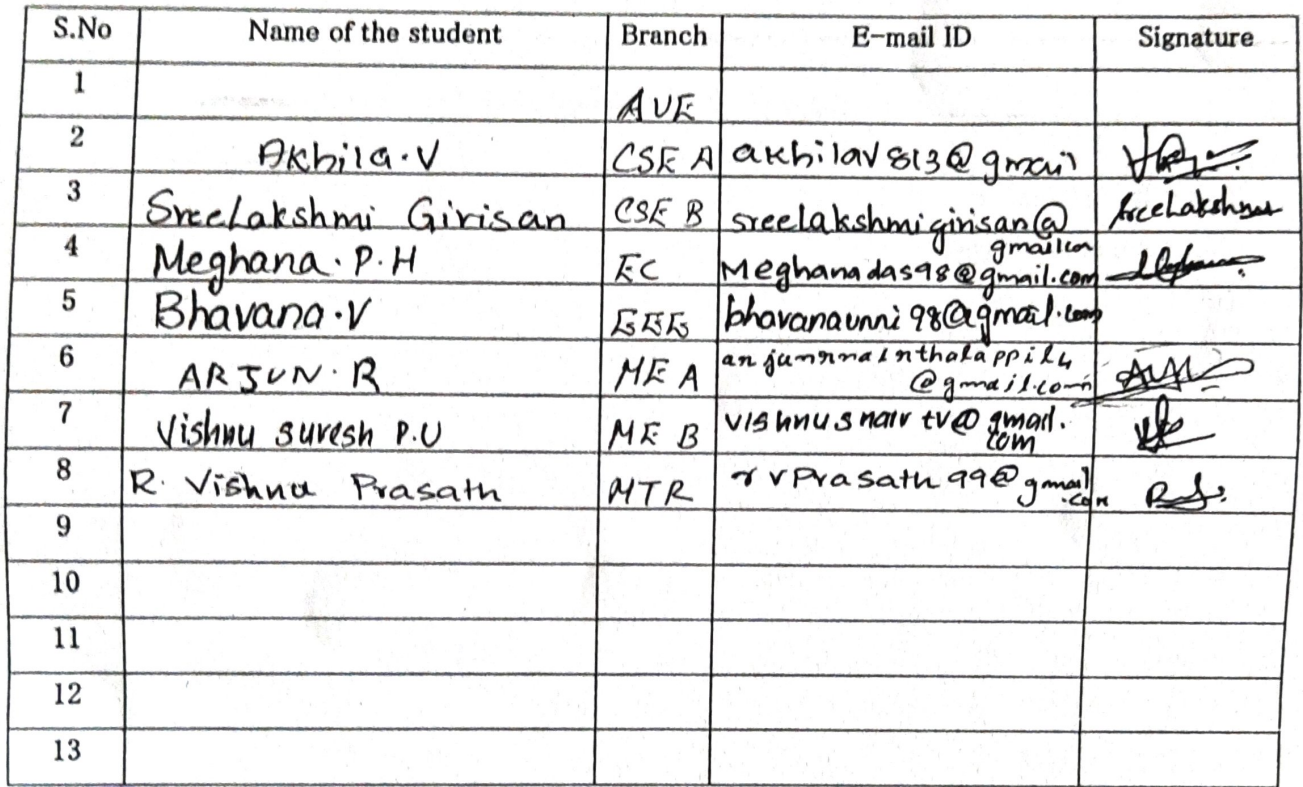 S.No Name of the student Branch E-mail ID Signature
1 AUE
2 Akhila.V CSE A akhilav813@gmail
3 Sreelakshmi Girisan CSE B sreelakshmigirisan@ Sreelakshmi
gmailcom
4 Meghana.P.H EC Meghanadas98@gmail.com
5 Bhavana.V EEE bhavanaunni98@gmail.com
6 ARJUN.R ME A
@gmail.com
7 Vishnu suresh P.U ME B vishnusnairtv@gmail.
com
8 R. Vishnu Prasath MTR rvPrasath99@gmail
.com
9
10
11
12
13